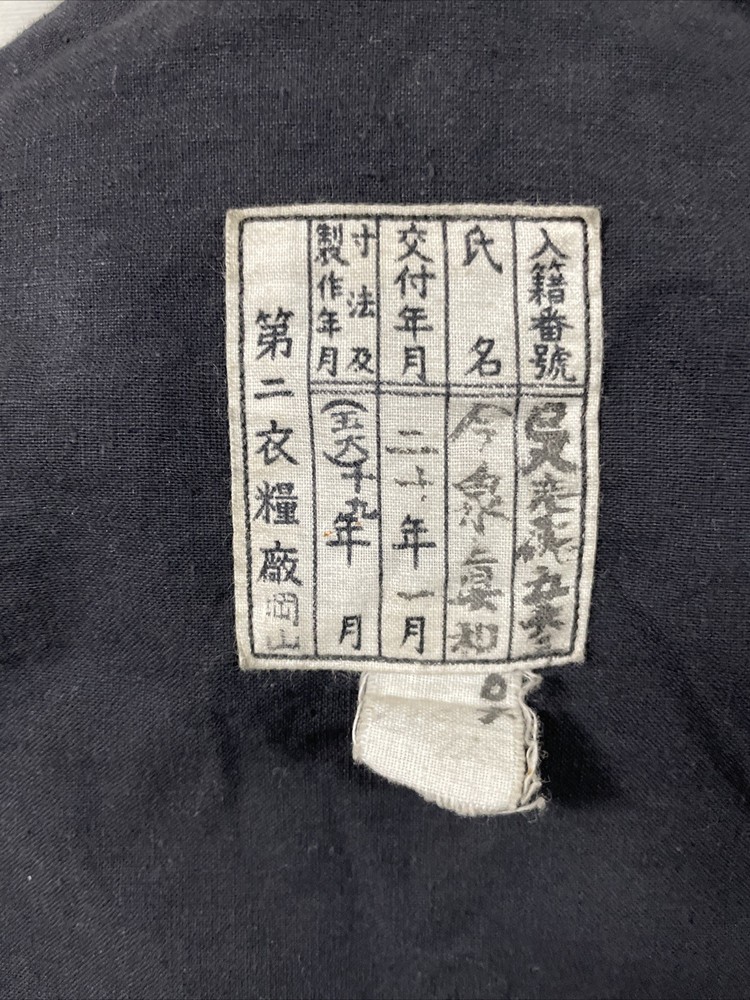 入籍番號 呉
氏名 今泉眞和
交付年月 二十年一月
寸法及製作年月 (五六)十九年 月
第二衣糧廠岡山